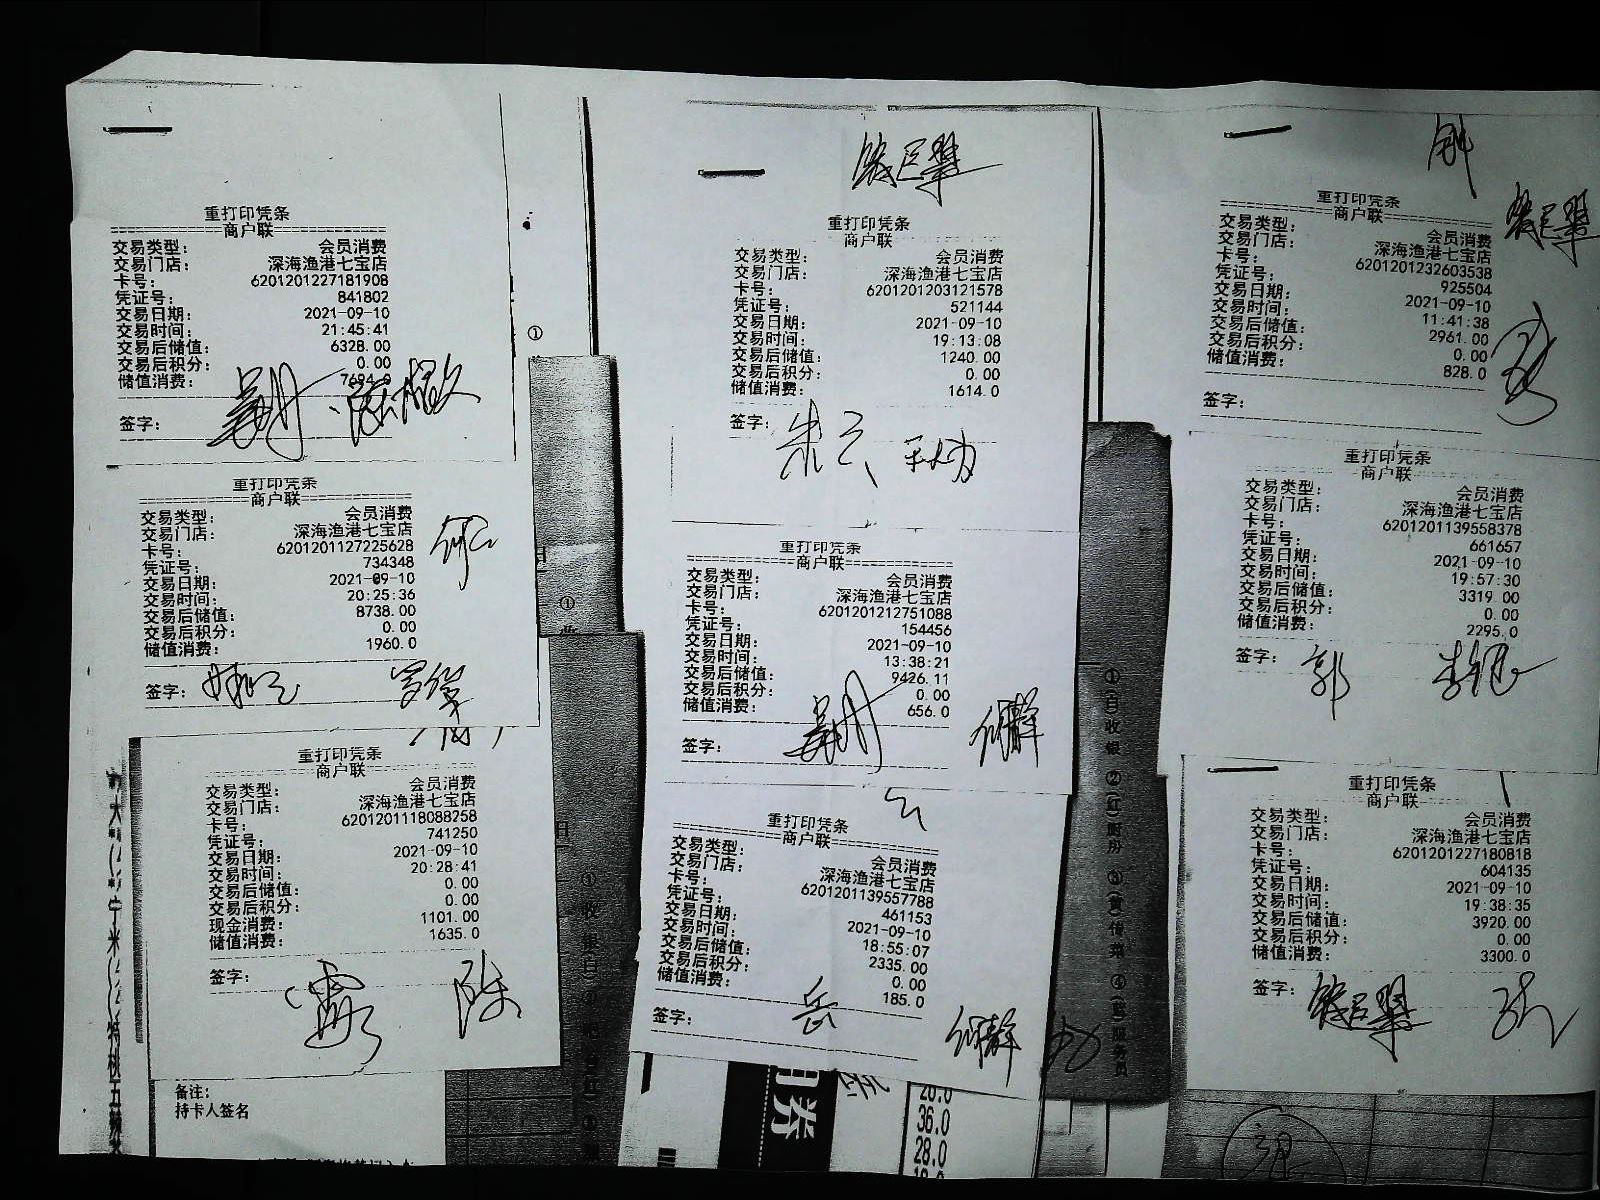 重打印凭条
商户联
交易类型： 会员消费
交易门店： 深海渔港七宝店
卡号： 6201201227181908
凭证号： 841802
交易日期： 2021-09-10
交易时间： 21:45:41
交易后储值： 6328.00
交易后积分： 0.00
储值消费：
签字：
重打印凭条
商户联
交易类型： 会员消费
交易门店： 深海渔港七宝店
卡号： 6201201127225628
凭证号： 734348
交易日期： 2021-09-10
交易时间： 20:25:36
交易后储值： 8738.00
交易后积分： 0.00
储值消费： 1960.0
签字：
重打印凭条
商户联
交易类型： 会员消费
交易门店： 深海渔港七宝店
卡号： 6201201118088258
凭证号： 741250
交易日期： 2021-09-10
交易时间： 20:28:41
交易后储值： 0.00
交易后积分： 0.00
现金消费： 1101.00
储值消费： 1635.0
签字：
陈
备注：
持卡人签名
重打印凭条
商户联
交易类型： 会员消费
交易门店： 深海渔港七宝店
卡号： 6201201203121578
凭证号： 521144
交易日期： 2021-09-10
交易时间： 19:13:08
交易后储值： 1240.00
交易后积分： 0.00
储值消费： 1614.0
签字：
重打印凭条
商户联
交易类型： 会员消费
交易门店： 深海渔港七宝店
卡号： 6201201212751088
凭证号： 154456
交易日期： 2021-09-10
交易时间： 13:38:21
交易后储值： 9426.11
交易后积分： 0.00
储值消费： 656.0
签字：
重打印凭条
商户联
交易类型： 会员消费
交易门店： 深海渔港七宝店
卡号： 6201201139557788
凭证号： 461153
交易日期： 2021-09-10
交易时间： 18:55:07
交易后储值： 2335.00
交易后积分： 0.00
储值消费： 185.0
签字： 岳 何静
36.0
28.0
重打印凭条
商户联
交易类型： 会员消费
交易门店： 深海渔港七宝店
卡号： 6201201232603538
凭证号： 925504
交易日期： 2021-09-10
交易时间： 11:41:38
交易后储值： 2961.00
交易后积分： 0.00
储值消费： 828.0
签字：
重打印凭条
商户联
交易类型： 会员消费
交易门店： 深海渔港七宝店
卡号： 6201201139558378
凭证号： 661657
交易日期： 2021-09-10
交易时间： 19:57:30
交易后储值： 3319.00
交易后积分： 0.00
储值消费： 2295.0
签字： 郭
重打印凭条
商户联
交易类型： 会员消费
交易门店： 深海渔港七宝店
卡号： 6201201227180818
凭证号： 604135
交易日期： 2021-09-10
交易时间： 19:38:35
交易后储值： 3920.00
交易后积分： 0.00
储值消费： 3300.0
签字：